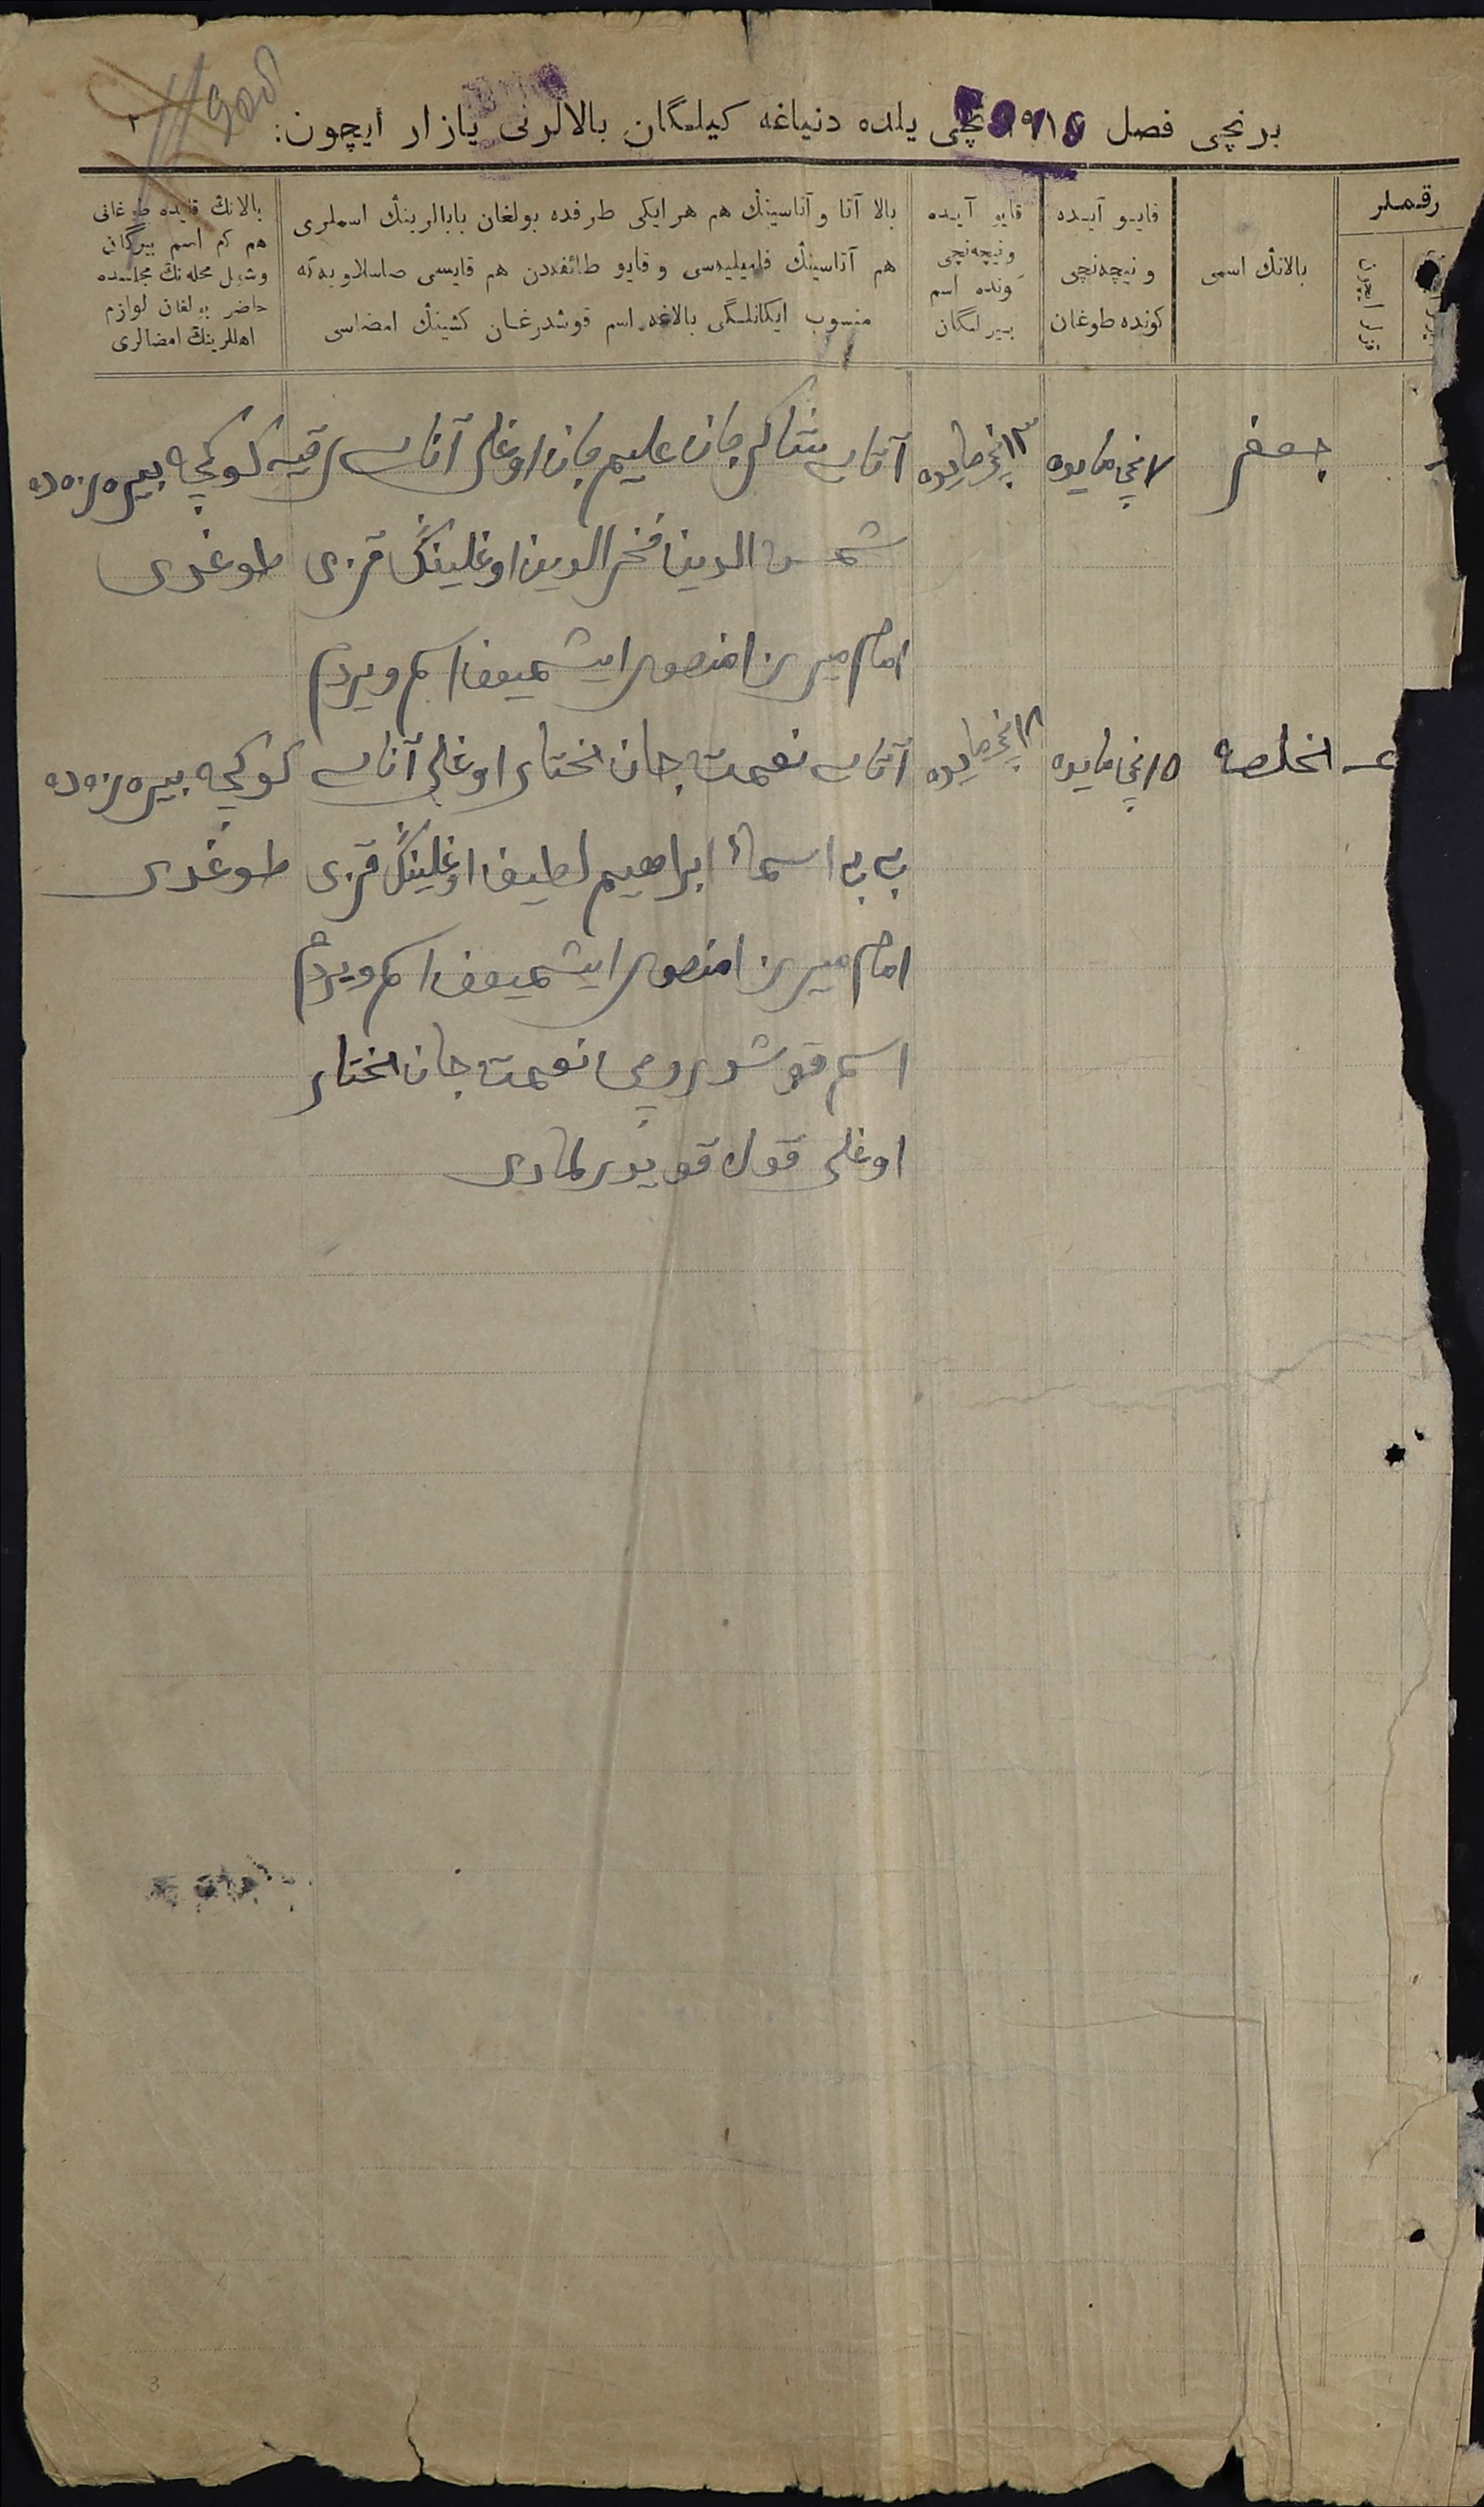 برنچی فصل ۱۹۱۵ نچی یلده دنیاغه کیلمگان بالالرنی یازار ایچون:
رقملر
بالانڭ اسمی
قایو آیده
و نیچه‌نچی
کونده طوغان
قایو آیده
و نیچه‌نچی
کونده اسم
بیرلمگان
بالا آتا و آناسینڭ هم هر ایکی طرفده بولغان بابالرینڭ اسملری
هم آتاسینڭ فامیلیه‌سی و قایو طائفه‌دن هم قایسی صاسلاویه‌گه
منسوب ایکانلگی بالاغه اسم قوشدرغان کشینڭ امضاسی
بالانڭ قایده طوغانی
هم کم اسم بیرگان
وشول محله‌نڭ مجلسده
حاضر بولغان لوازم
اهللرینڭ امضالری
جعفر ۷ نچی مایده ۱۳ نچی مایده آتاسی شاکرجان علیم جان اوغلی آناسی رقیه کوکچه بیره‌زه‌ده
شمس الدین فخرالدین اوغلینڭ قزی طوغدی
امام میرزا منصور ایشمیف اسم ویردم
۲ مخلصه ۱۵ نچی مایده ۱۸ نچی مایده آتاسی نعمت جان مختار اوغلی آناسی کوکچه بیره‌زه‌ده
بی بی اسماء ابراهیم لطیف اوغلینڭ قزی طوغدی
امام میرزا منصور ایشمیف اسم ویردم
اسم قوشدروچی نعمت جان مختار
اوغلی قول قویدرلمادی